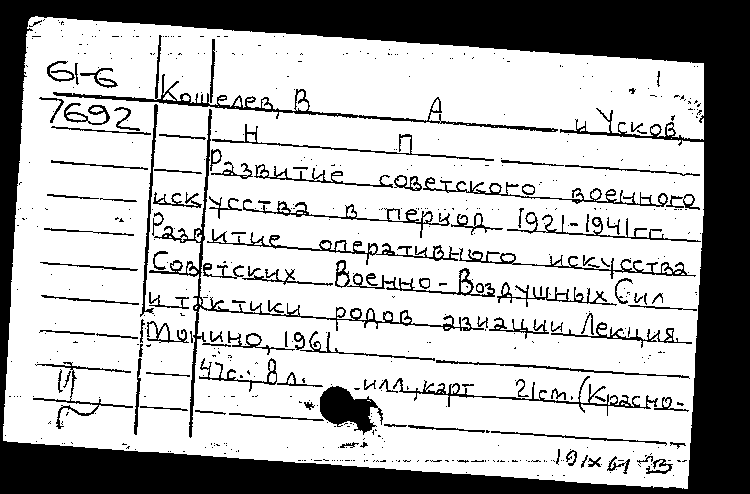 1
61-6
7692
Кошелев, В А и Усков,
Н П
Развитие советского военного
искусства в период 1921-1941гг.
Развитие оперативного искусства
Советских Военно-Воздушных Сил
и тактики родов авиации. Лекция.
Монино, 1961.
47с.; 8 л. илл., карт 21см. (Красно-